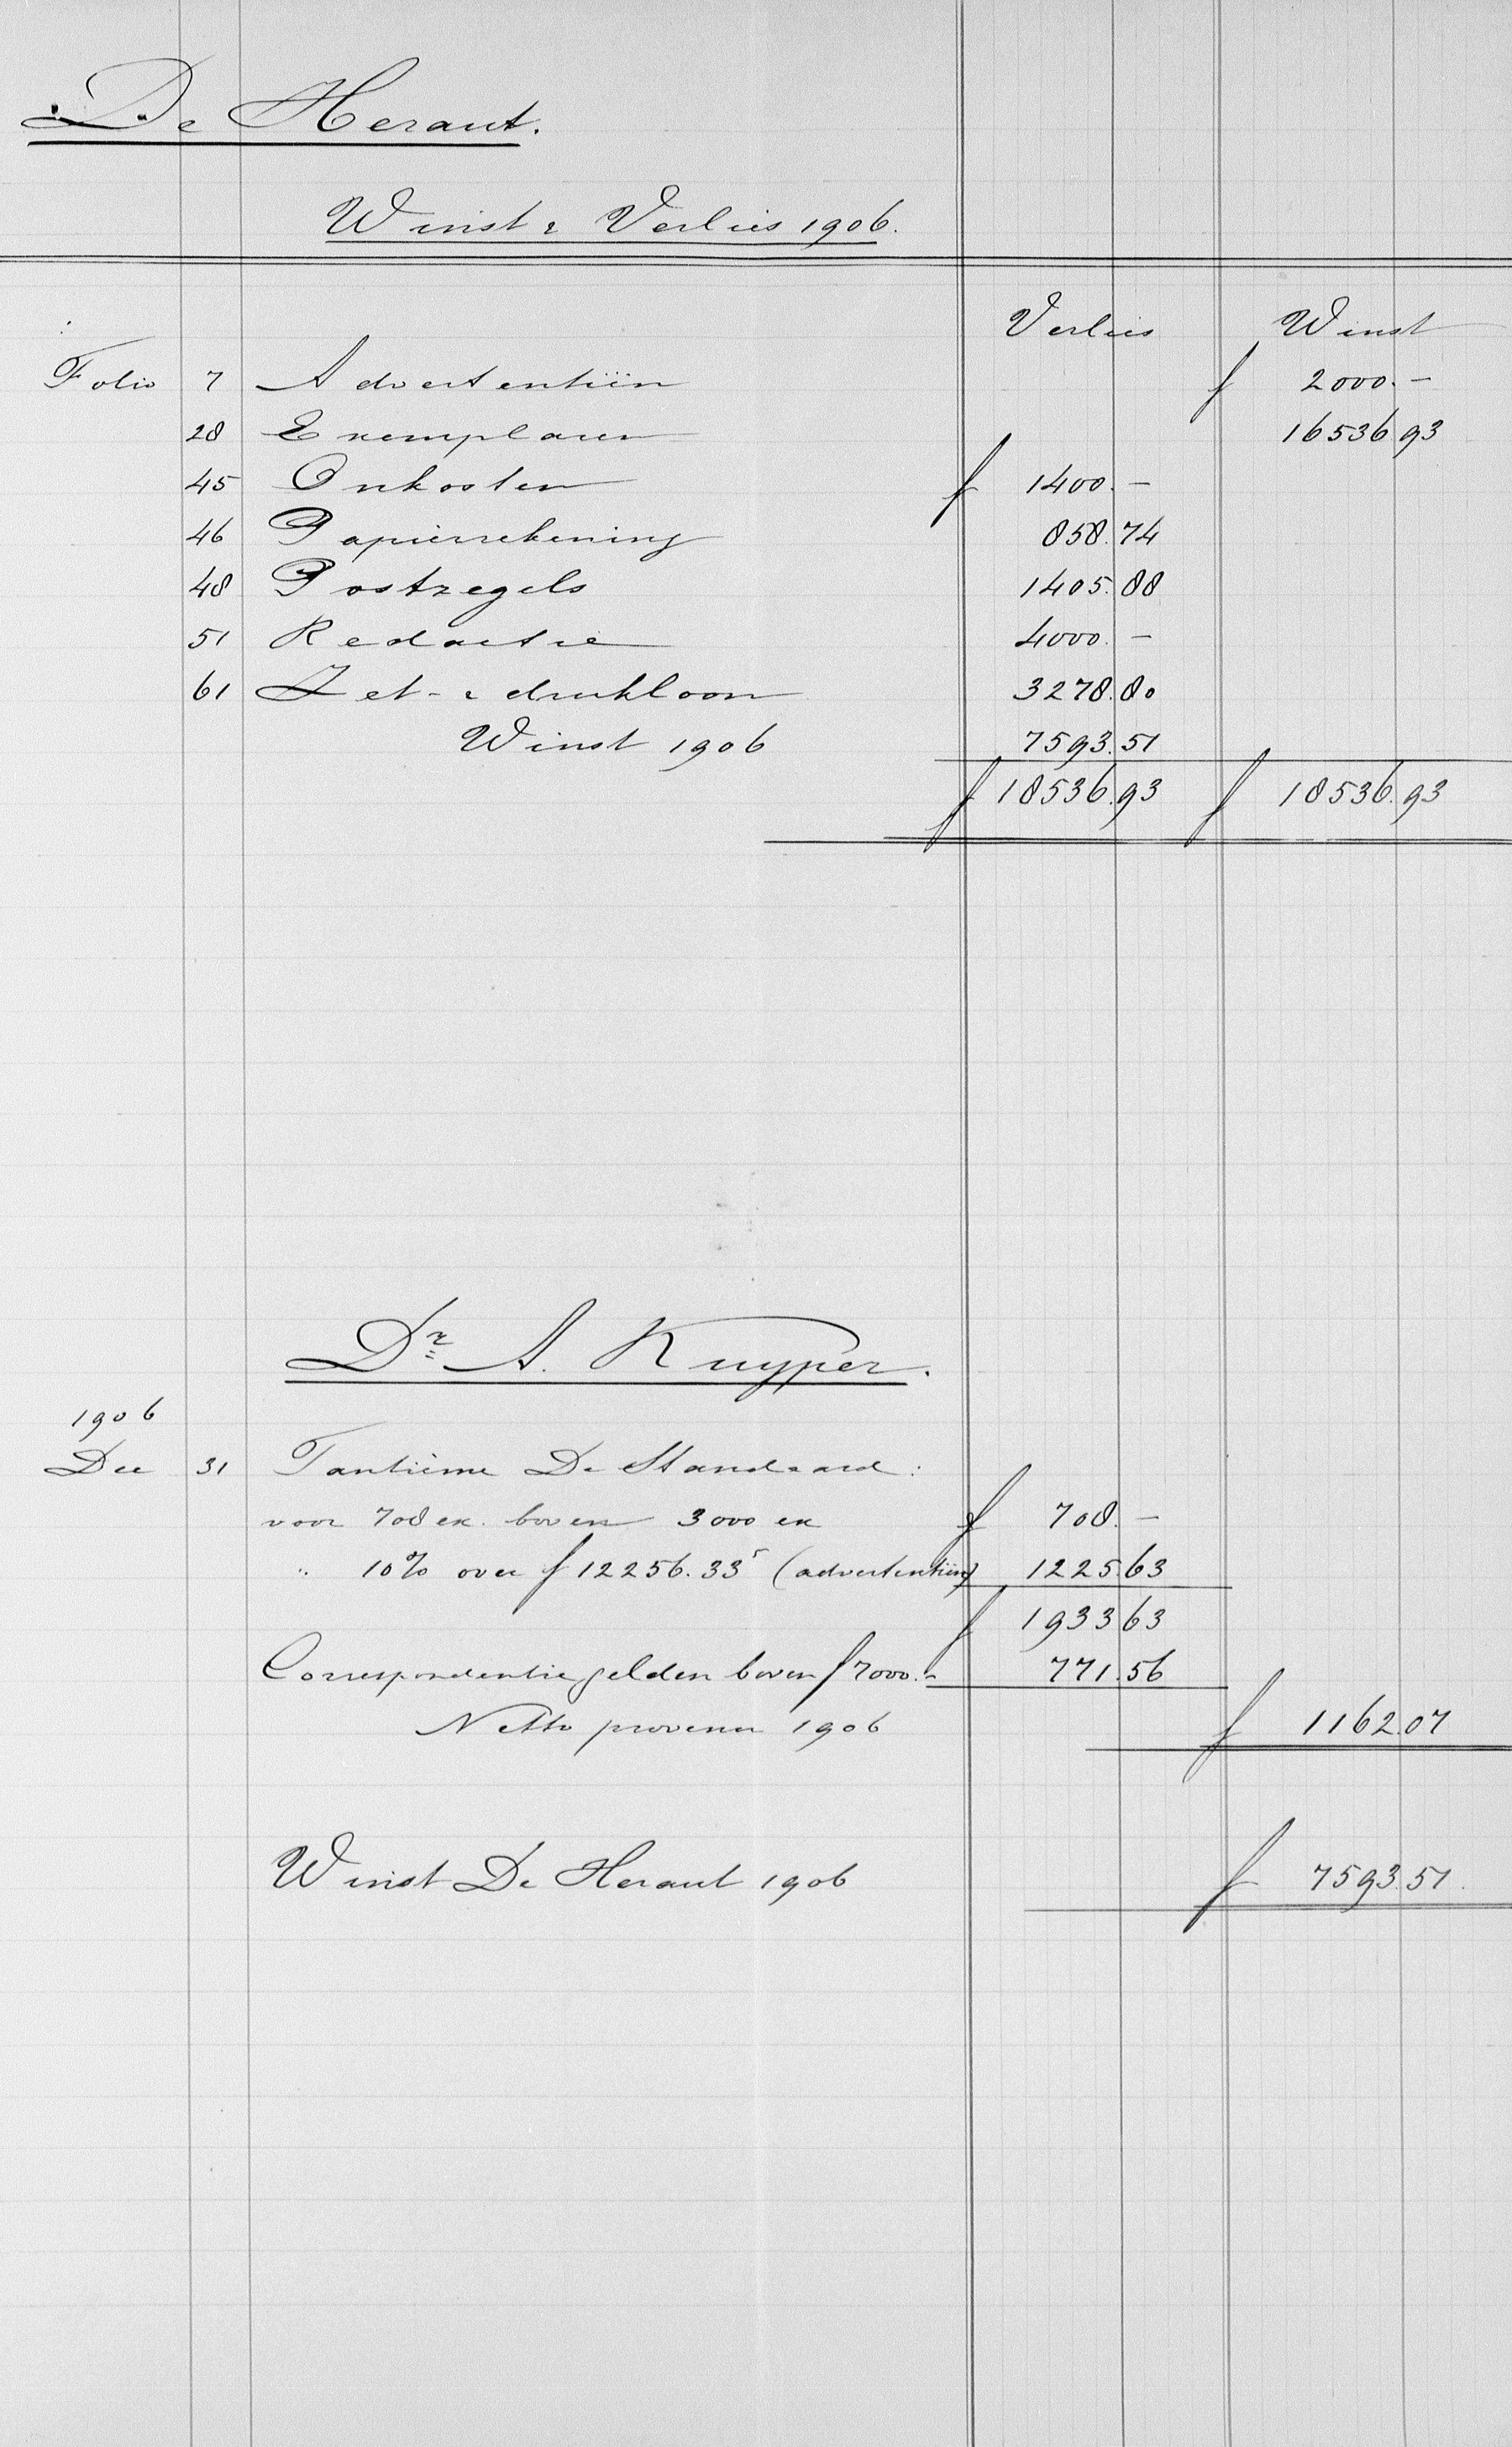 De Heraut.
Winst & Verlies 1906.
Verlies Winst
Folio 7 Advertentiën f 2000.-
28 Exemplaren 16536 93
45 Onkosten f 1400.-
46 Papierrekening 858.74
48 Postzegels 1405.88
51 Redactie 4000.-
61 Zet- & drukloon 3278.80
Winst 1906 7593.51
f 18536.93 f 18536.93
Dr. A. Kuyper.
1906
Dec 31 Tantième De Standaard:
voor 708 ex. boven 3000 ex f 708.-
" 10% over f 12256.33⁵ (advertentiën) 1225.63
f 1933 63
Correspondentiegelden boven f 7000.- 771.56
Netto provenu 1906 f 1162.07
Winst De Heraut 1906 f 7593.51.